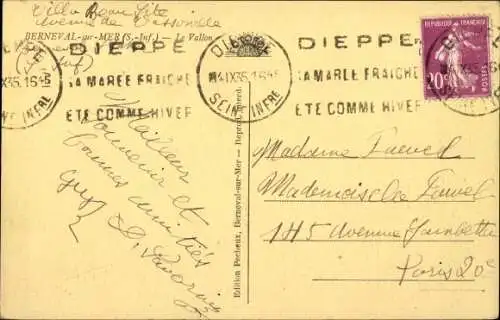 Villa Beau Site
Avenue de
BERNEVAL-sur-MER (S.-Inf.) — Le Vallon
DIEPPE
LA MARÉE FRAICHE
ÉTÉ COMME HIVER
DIEPPE
IX35
SEINE INFRE
DIEPPE
LA MARÉE FRAICHE
ÉTÉ COMME HIVER
REPUBLIQUE FRANÇAISE
20c
POSTES
Meilleur
souvenir et
bonnes amitiés
Edition Pecheux, Berneval-sur-Mer - Reprod. interd.
Madame
Mademoiselle
145 Avenue Gambetta
Paris 20e